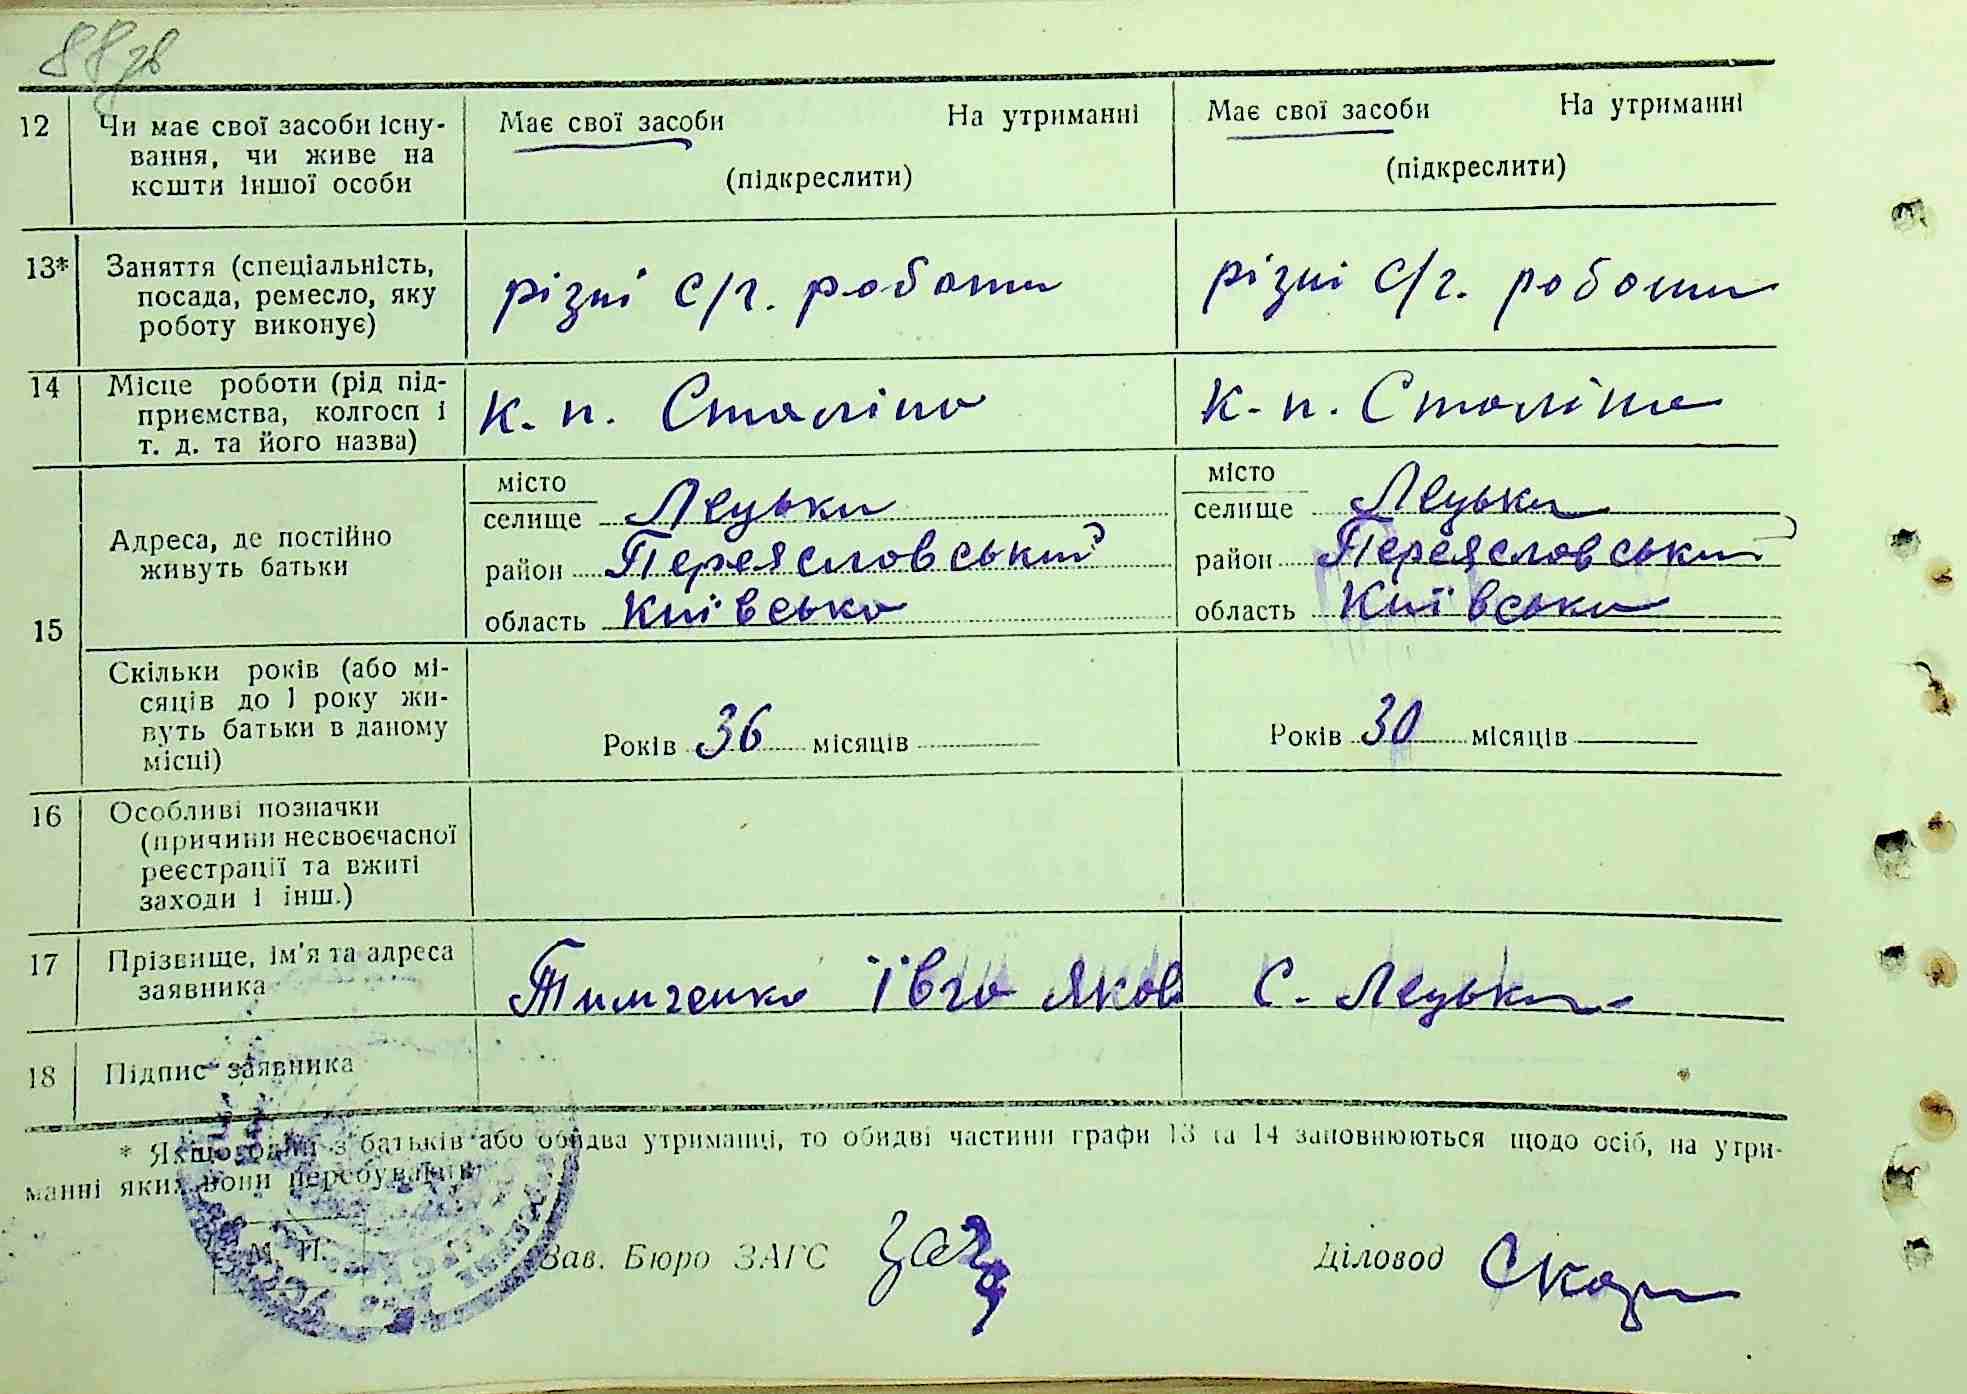 88зв
12 Чи має свої засоби існу- Має свої засоби На утриманні Має свої засоби На утриманні
вання, чи живе на
кошти іншої особи (підкреслити) (підкреслити)
13* Заняття (спеціальність, посада, ремесло, яку роботу виконує) різні с/г. роботи різні с/г. роботи
14 Місце роботи (рід під-
приємства, колгосп і к. п. Сталіна к. п. Сталіна
т. д. та його назва)
місто місто
селище Лецьки селище Лецьки
Адреса, де постійно
живуть батьки район Переясловський район Переясловський
15 область Київська область Київська
Скільки років (або мі-
сяців до 1 року жи-
вуть батьки в даному Років 36 місяців Років 30 місяців
місці)
16 Особливі позначки
(причини несвоєчасної
реєстрації та вжиті
заходи і інш.)
17 Прізвище, ім'я та адреса
заявника Тимченко Ївга Яков с. Лецьки
18 Підпис заявника
* Якщо один з батьків або обидва утриманці, то обидві частини графи 13 та 14 заповнюються щодо осіб, на утри-
манні яких вони перебувають
М. П. Зав. Бюро ЗАГС Діловод